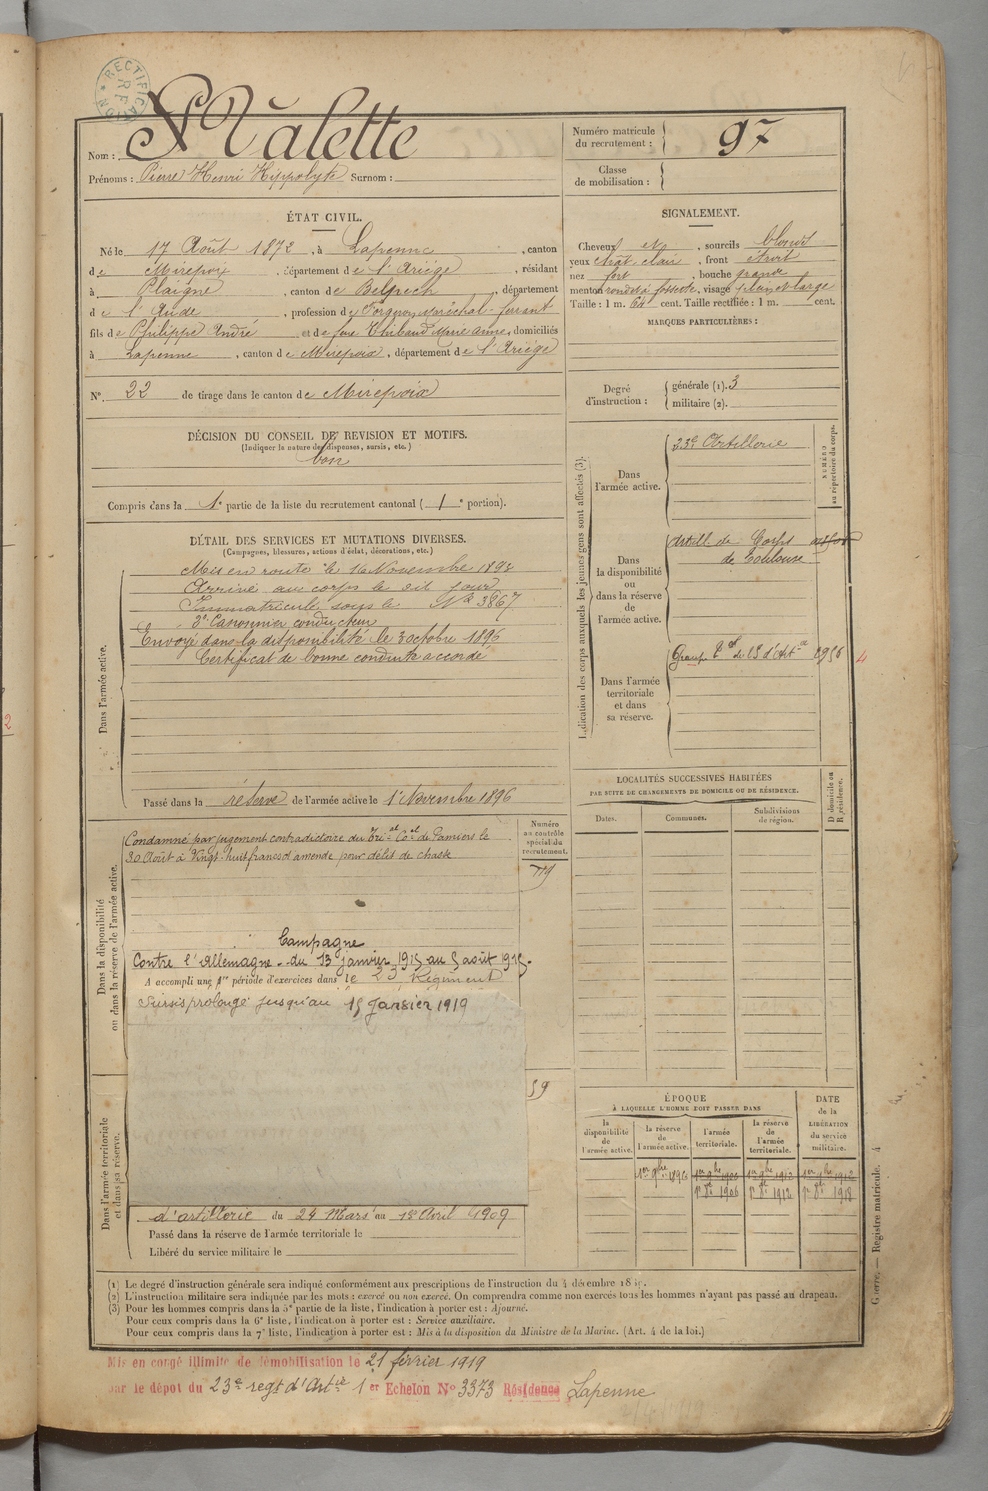 RECTIFICATION R F
Nom : Malette
Prénoms : Pierre Henri Hippolyte Surnom :
Numéro matricule du recrutement : 97
Classe de mobilisation :
ÉTAT CIVIL.
Né le 17 Août 1872, à Lapenne, canton
de Mirepoix, département de l'Ariège, résidant
à Plaigne, canton de Belpech, département
de l'Aude, profession de Forgeron Maréchal-ferrant
fils de Philippe André et de feue Thibaud Marie anne, domiciliés
à Lapenne, canton de Mirepoix, département de l'Ariège
N° 22 de tirage dans le canton de Mirepoix
SIGNALEMENT.
Cheveux et, sourcils blonds
yeux chât. clair, front étroit
nez fort, bouche grande
menton rond et à fossette, visage plein et large
Taille : 1 m. 64 cent. Taille rectifiée : 1 m. cent.
MARQUES PARTICULIÈRES :
Degré d'instruction : générale (1). 3
militaire (2).
DÉCISION DU CONSEIL DE REVISION ET MOTIFS.
(Indiquer la nature des dispenses, sursis, etc.)
bon
Compris dans la 1e partie de la liste du recrutement cantonal (1e portion).
DÉTAIL DES SERVICES ET MUTATIONS DIVERSES.
(Campagnes, blessures, actions d'éclat, décorations, etc.)
Dans l'armée active.
Mis en route le 16 Novembre 1893
Arrivé au corps le dit jour
Immatriculé sous le N° 3867
2e Canonnier conducteur
Envoyé dans la disponibilité le 3 octobre 1896
Certificat de bonne conduite accordé
Passé dans la réserve de l'armée active le 1er Novembre 1896
Indication des corps auxquels les jeunes gens sont affectés (3).
NUMÉRO au répertoire du corps.
Dans l'armée active.
23e Artillerie
Dans la disponibilité ou dans la réserve de l'armée active.
Artill. de Corps
de Toulouse
Dans l'armée territoriale et dans sa réserve.
Groupe tal du 18 d'Art ie 2956 4
LOCALITÉS SUCCESSIVES HABITÉES
PAR SUITE DE CHANGEMENTS DE DOMICILE OU DE RÉSIDENCE.
Dates. Communes. Subdivisions de région. D domicile ou R résidence.
Dans la disponibilité ou dans la réserve de l'armée active.
Numéro au contrôle spécial du recrutement.
Condamné par jugement contradictoire du Trial Coal de Pamiers le
30 Août à Vingt-huit francs d'amende pour délit de chasse
Campagne
Contre l'Allemagne. du 13 janvier 1915 au 5 août 1915.
A accompli une 1re période d'exercices dans le 23 Régiment
Sursis prolongé jusqu'au 15 Janvier 1919
59
Dans l'armée territoriale et dans sa réserve.
d'artillerie du 24 Mars au 1er Avril 1909
Passé dans la réserve de l'armée territoriale le
Libéré du service militaire le
ÉPOQUE
À LAQUELLE L'HOMME DOIT PASSER DANS
la disponibilité de l'armée active.
la réserve de l'armée active.
l'armée territoriale.
la réserve de l'armée territoriale.
DATE de la LIBÉRATION du service militaire.
1er 9bre 1896 1er 9bre 1906 1er 9bre 1912 1er 9bre 1912
1er 8bre 1906 1er 8bre 1912 1er 8bre 1918
(1) Le degré d'instruction générale sera indiqué conformément aux prescriptions de l'instruction du 4 décembre 1889.
(2) L'instruction militaire sera indiquée par les mots : exercé ou non exercé. On comprendra comme non exercés tous les hommes n'ayant pas passé au drapeau.
(3) Pour les hommes compris dans la 5e partie de la liste, l'indication à porter est : Ajourné.
Pour ceux compris dans la 6e liste, l'indication à porter est : Service auxiliaire.
Pour ceux compris dans la 7e liste, l'indication à porter est : Mis à la disposition du Ministre de la Marine. (Art. 4 de la loi.)
Guerre. — Registre matricule. 4
Mis en congé illimité de démobilisation le 21 février 1919
par le dépot du 23e regt d'Artie 1er Echelon N° 3373 Résidence Lapenne